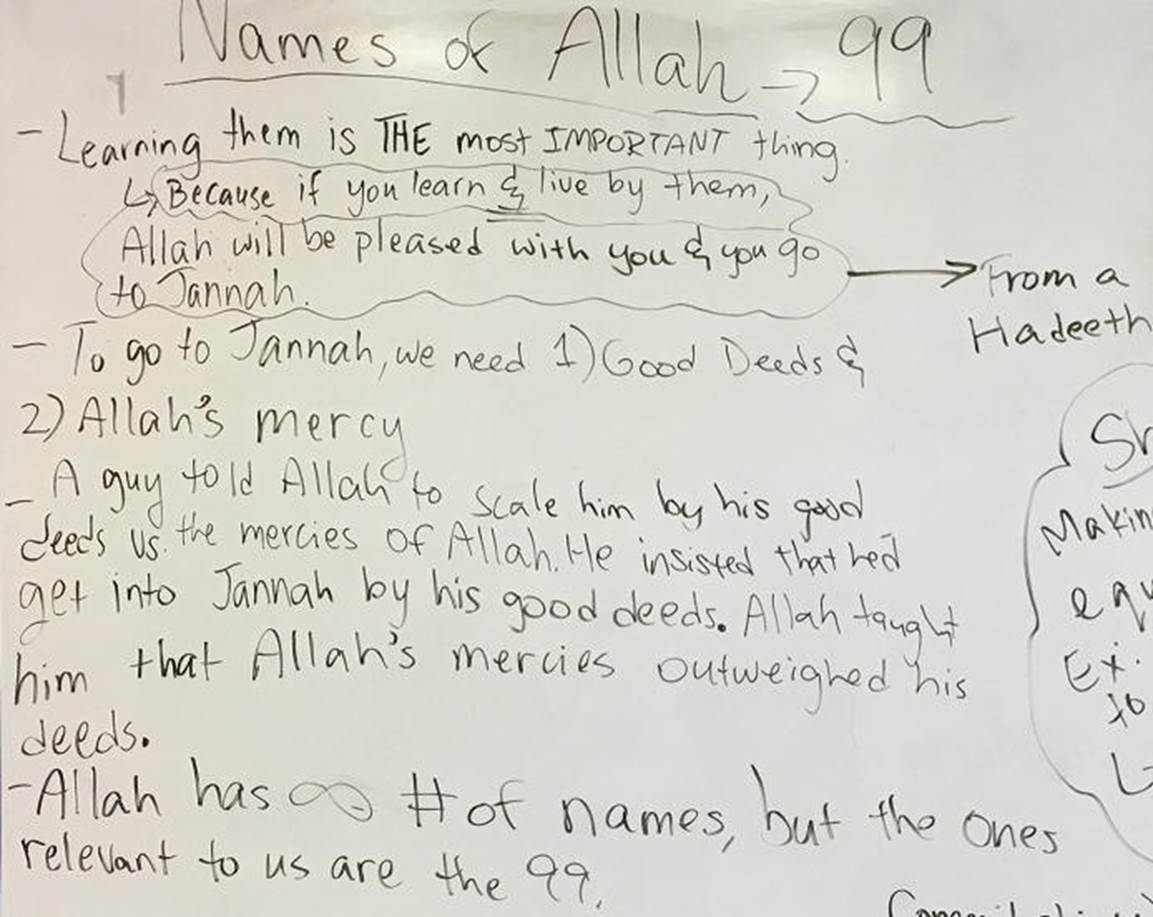 Names of Allah → 99
- Learning them is THE most IMPORTANT thing.
↳ Because if you learn & live by them,
Allah will be pleased with you & you go
to Jannah.
→ From a
Hadeeth
- To go to Jannah, we need 1) Good Deeds &
2) Allah's mercy
- A guy told Allah to scale him by his good
deeds vs. the mercies of Allah. He insisted that he'd
get into Jannah by his good deeds. Allah taught
him that Allah's mercies outweighed his
deeds.
- Allah has ∞ # of names, but the ones
relevant to us are the 99.
Sh
Makin
equ
Ex:
to